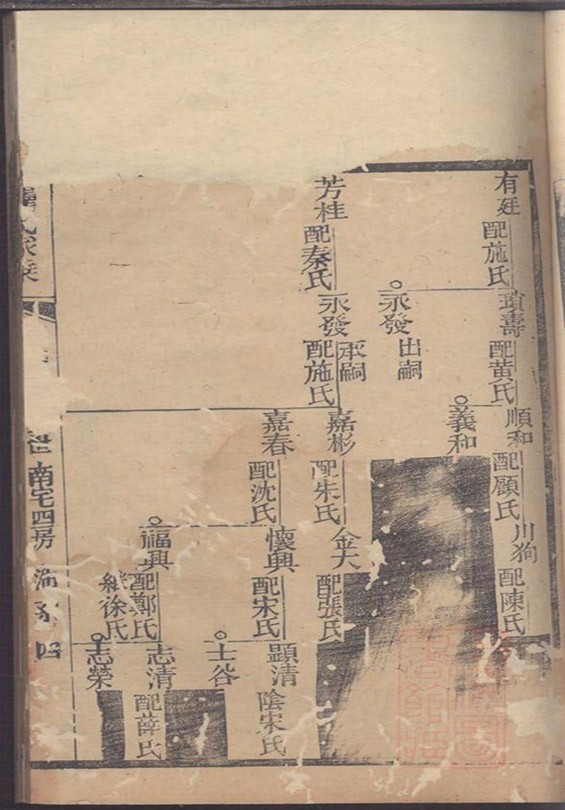 有廷
配施氏
瑣壽
配黃氏
順和
配顧氏
川狗
配陳氏
義和
永發
出嗣
芳桂
配秦氏
永發
承嗣
配施氏
嘉彬
配朱氏
金大
配張氏
嘉春
配沈氏
懷興
配宋氏
顯清
陰宋氏
士谷
福興
配鄭氏
繼徐氏
志清
配薛氏
志榮
南宅四房